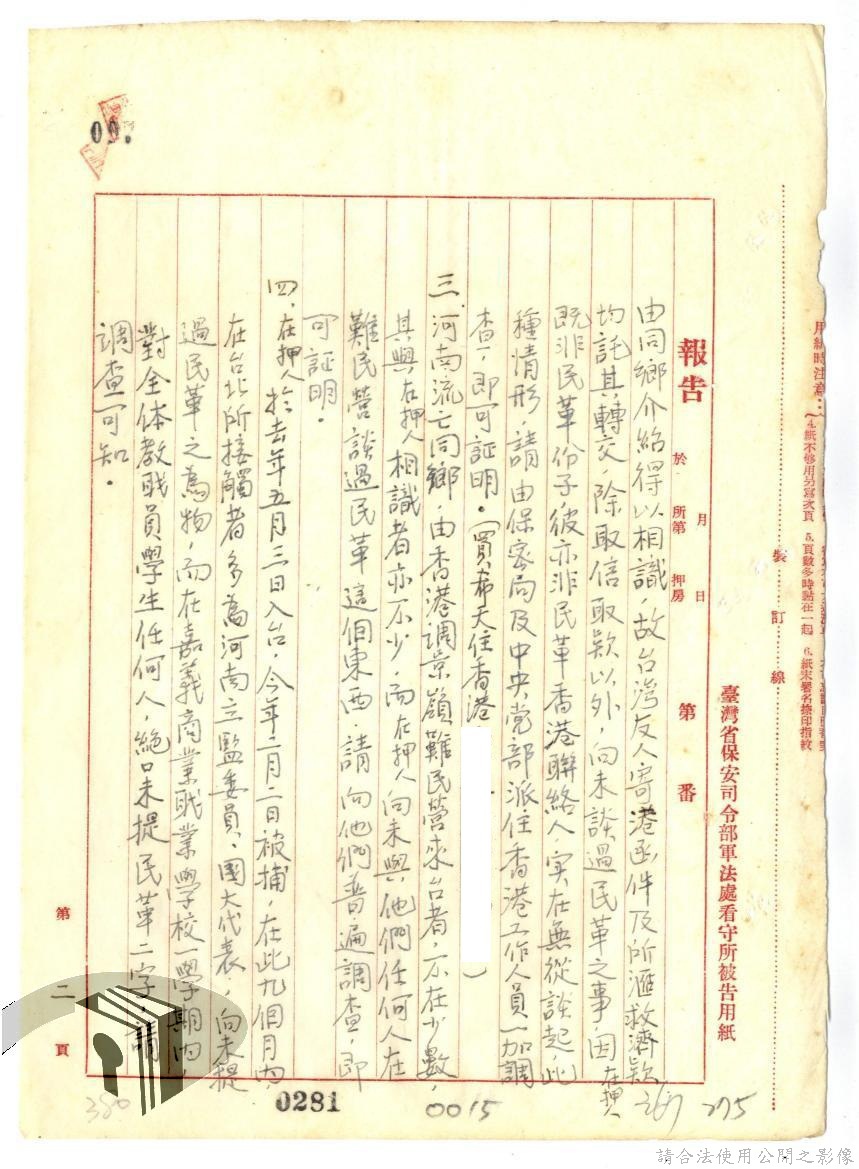 用紙時注意：
4.紙不够用另寫次頁 5.頁數多時黏在一起 6.紙末署名捺印指紋
裝訂線
臺灣省保安司令部軍法處看守所被告用紙
報告
於 月 日
所第 押房
第 番
由同鄉介紹得以相識，故台湾友人寄港函件及所滙救濟欵
均託其轉交，除取信取欵以外，向未談過民革之事，因在押人
既非民革份子，彼亦非民革香港聯絡人，实在無從談起，此
種情形，請由保密局及中央党部派住香港工作人員一加調
查，即可証明。（買希天住香港
）
三、河南流亡同鄉，由香港調景嶺難民營來台者，不在少數，
其與在押人相識者亦不少，而在押人向未與他們任何人在
難民營談過民革這個東西，請向他們普遍調查，即
可証明。
四、在押人於去年五月三日入台，今年二月二日被捕，在此九個月內，
在台北所接觸者多為河南立監委員、國大代表，向未提
過民革之為物，而在嘉義商業職業學校一學期內，
對全体教职員學生任何人，絕口未提民革二字，請
調查可知。
第二頁
00.
380
0281
0015
275
請合法使用公開之影像